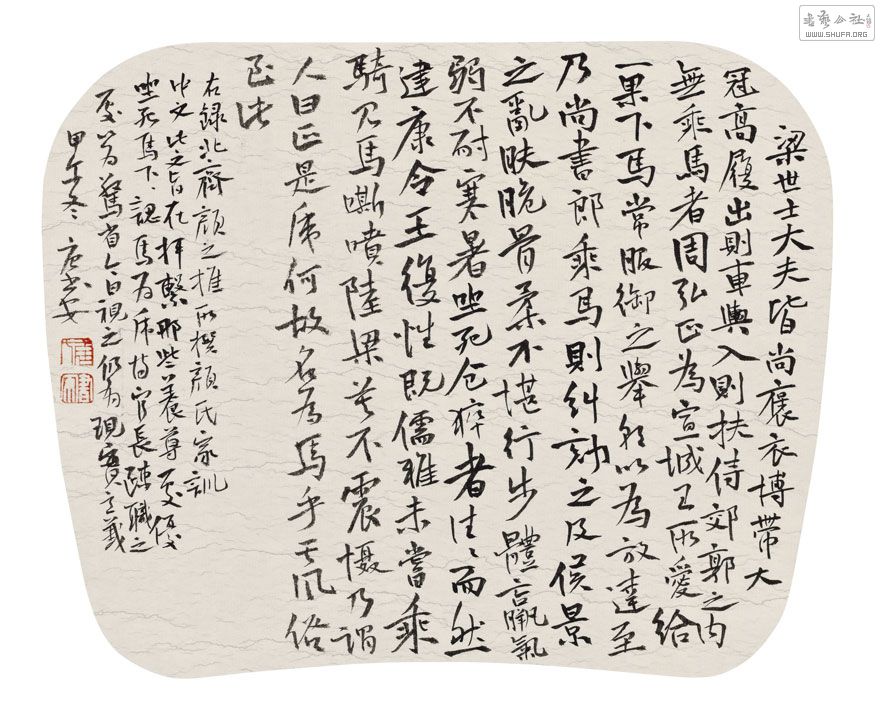 梁世士大夫皆尚褒衣博帶大
冠高履出則車輿入則扶侍郊郭之內
無乘馬者周弘正為宣城王所愛給
一果下馬常服御之舉朝以為放達至
乃尚書郎乘馬則糾劾之及侯景
之亂肤脆骨柔不堪行步體羸氣
弱不耐寒暑坐死仓猝者往往而然
建康令王復性既儒雅未嘗乘
騎见馬嘶噴陸梁莫不震懾乃謂
人曰正是虎何故名為馬乎其風俗
至此
右錄北齊顏之推所撰顏氏家訓
中文此文旨在抨擊那些養尊處優
坐死馬下馬為虎官長職之
為驚省今日視之仍有現實意義
甲午冬
書藝公社
WWW.SHUFA.ORG